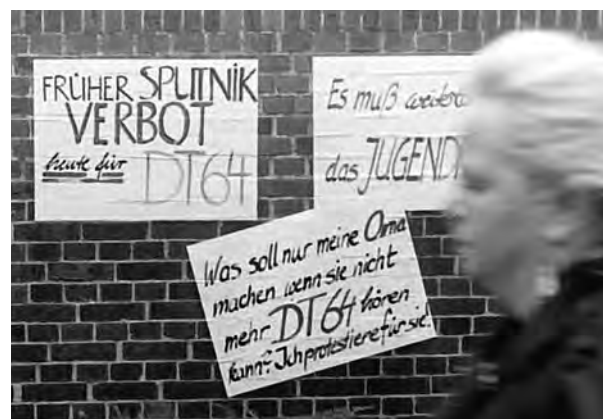 FRÜHER SPUTNIK
VERBOT
heute für DT64
Es muß
das JUGEND
Was soll nur meine Oma
machen wenn sie nicht
mehr DT64 hören
kann? Ich protestiere für sie!